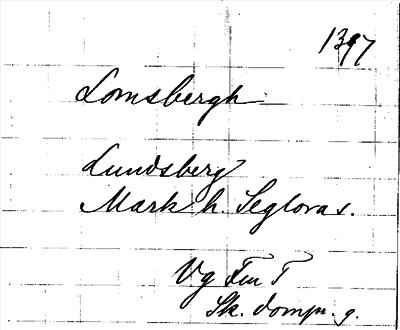 1397
Lomsbergh
Lundsberg
Mark h. Seglora s.
Vg Fm T
Sk. dompr. g.